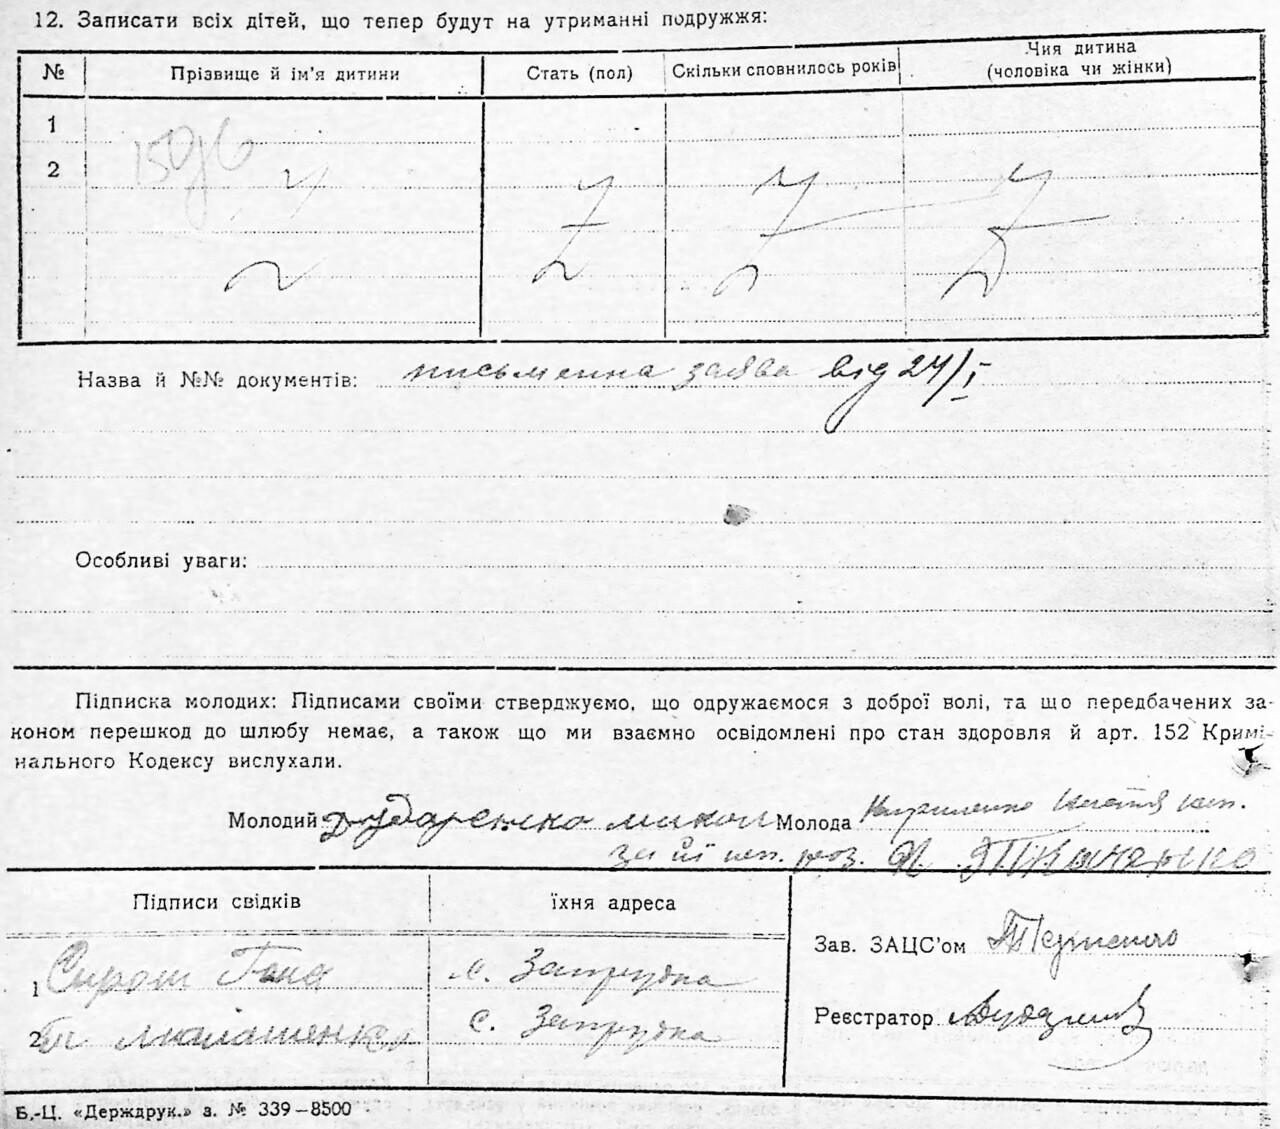 12. Записати всіх дітей, що тепер будут на утриманні подружжя:
№ Прізвище й ім'я дитини Стать (пол) Скільки сповнилось років Чия дитина (чоловіка чи жінки)
1
2
Назва й №№ документів: письменна заява від 24/I
Особливі уваги:
Підписка молодих: Підписами своїми стверджуємо, що одружаємося з доброї волі, та що передбачених за-
коном перешкод до шлюбу немає, а також що ми взаємно освідомлені про стан здоровля й арт. 152 Кримі-
нального Кодексу вислухали.
Молодий Дударенко микол Молода
за її неп. роз.
Підписи свідків їхня адреса
Зав. ЗАЦС'ом
1 Сирош Гана с. Запрудка
Реєстратор
2 с. Запрудка
Б.-Ц. «Держдрук.» з. № 339—8500